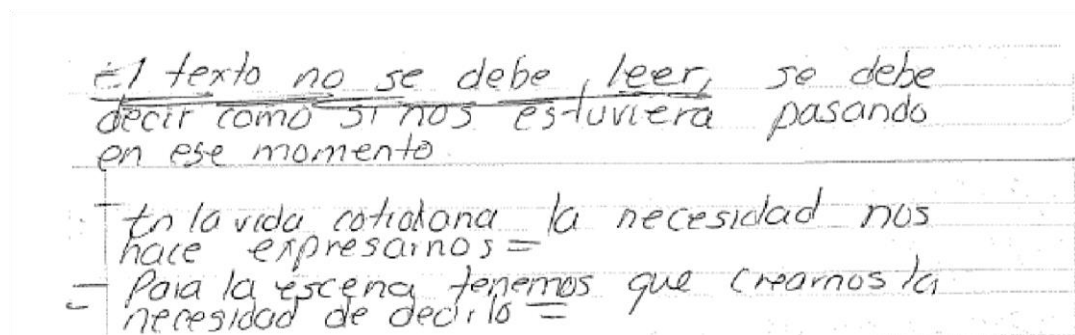 El texto no se debe leer, se debe
decir como si nos estuviera pasando
en ese momento.
- En la vida cotidiana la necesidad nos
hace expresarnos =
- Para la escena tenemos que crearnos la
necesidad de decirlo =